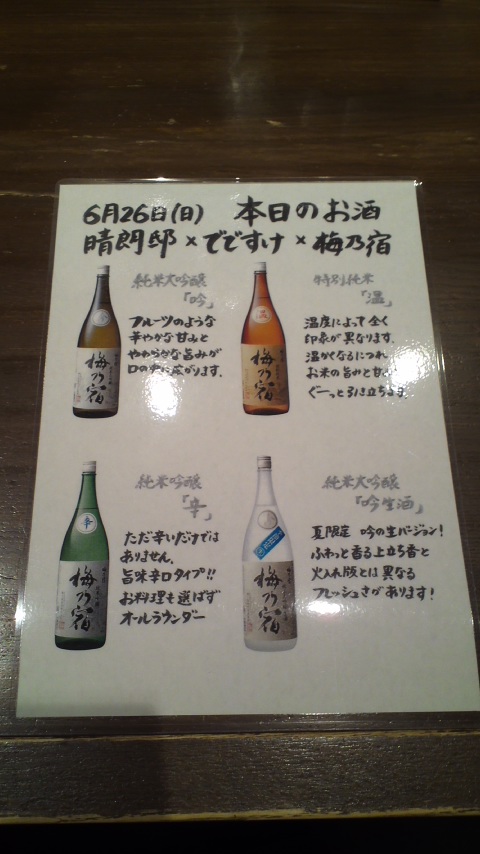 6月26日(日) 本日のお酒
晴朗邸×でですけ×梅乃宿
純米大吟醸
「吟」
フルーツのような
華やかな甘みと
やわらかな旨みが
口の中に広がります。
梅乃宿
特別純米
「温」
温度によって全く
印象が異なります。
温かくなるにつれ
お米の旨みと甘
ぐーっと引き立ちます。
温
梅乃宿
純米吟醸
「辛」
ただ辛いだけでは
ありません。
旨味辛口タイプ!!
お料理も選ばず
オールラウンダー
辛
梅乃宿
純米大吟醸
「吟生酒」
夏限定 吟の生バージョン!
ふわっと香る上立ち香と
火入れ版とは異なる
フレッシュさがあります!
梅乃宿